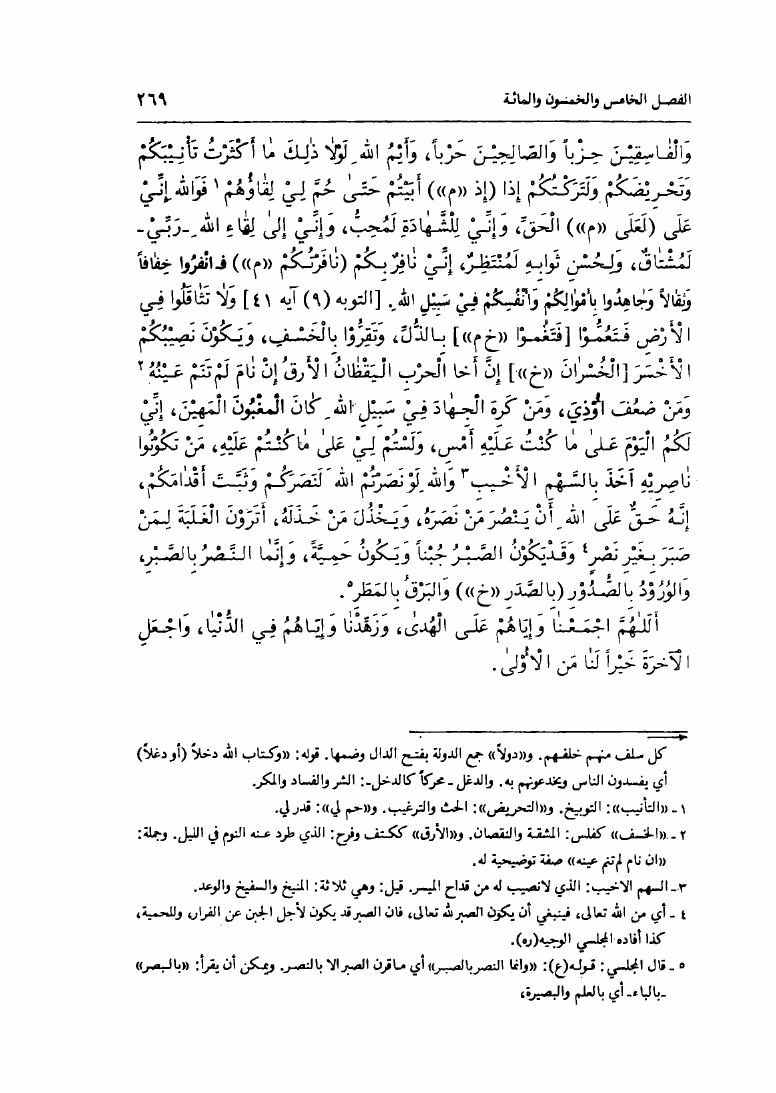 الفصل الخامس والخمسون والمائة ٢٦٩
وَالْفَاسِقِيْنَ حِزْباً وَالصّالِحِيْنَ حَرْباً، وَأَيْمُ اللهِ لَوْلاٰ ذٰلِكَ مٰا أَكْثَرْتُ تَأْنِيْبَكُمْ
وَتَحْرِيْضَكُمْ وَلَتَرَكْتُكُمْ إِذا (إِذ «م») أَبَيْتُمْ حَتّىٰ حُمَّ لِيْ لِقٰاؤُهُمْ ١ فَوَاللهِ إِنِّيْ
عَلَى (لَعَلَى «م») الْحَقِّ، وَإِنِّيْ لِلشَّهٰادَةِ لَمُحِبٌّ، وَإِنِّيْ إِلىٰ لِقٰاءِ اللهِ ـ رَبِّيْ ـ
لَمُشْتٰاقٌ، وَلِحُسْنِ ثَوابِهِ لَمُنْتَظِرٌ، إِنِّيْ نٰافِرٌ بِكُمْ (نٰافَرْتُكُمْ «م») فَانْفِرُوا خِفٰافاً
وَثِقٰالاً وَجٰاهِدُوا بِأَمْوٰالِكُمْ وَأَنْفُسِكُمْ فِيْ سَبِيْلِ اللهِ. [التوبه (٩) آيه ٤١] وَلاٰ تَثٰاقَلُوا فِي
الأَرْضِ فَتَعُمُّوْا [فَتَغُمُوْا «خ م»] بِالذُّلِّ، وَتَقِرُّوْا بِالْخَسْفِ، وَيَكُوْنَ نَصِيْبُكُمْ
الأَخْسَرَ [الْخُسْرٰانَ «خ»] إِنَّ أَخا الْحَرْبِ الْيَقْظٰانُ الأَرِقُ إِنْ نٰامَ لَمْ تَنَمْ عَيْنُهُ ٢
وَمَنْ ضَعُفَ اوُْذِيَ، وَمَنْ كَرِهَ الْجِهٰادَ فِيْ سَبِيْلِ اللهِ كٰانَ الْمَغْبُوْنَ الْمَهِيْنَ، إِنِّيْ
لَكُمُ الْيَوْمَ عَلىٰ مٰا كُنْتُ عَلَيْهِ أَمْسِ، وَلَسْتُمْ لِيْ عَلىٰ مٰا كُنْتُمْ عَلَيْهِ، مَنْ تَكُوْنُوا
نٰاصِرِيْهِ أَخَذَ بِالسَّهْمِ الأَخْيَبِ ٣ وَاللهِ لَوْ نَصَرْتُمُ اللهَ لَنَصَرَكُمْ وَثَبَّتَ أَقْدٰامَكُمْ،
إِنَّهُ حَقٌّ عَلَى اللهِ أَنْ يَنْصُرَ مَنْ نَصَرَهُ، وَيَخْذُلَ مَنْ خَذَلَهُ، أَتَرَوْنَ الْغَلَبَةَ لِمَنْ
صَبَرَ بِغَيْرِ نَصْرٍ ٤ وَقَدْ يَكُوْنُ الصَّبْرُ جُبْناً وَيَكُونُ حَمِيَّةً، وَإِنَّمٰا النَّصْرُ بِالصَّبْرِ،
وَالْوُرُوْدُ بِالصُّدُوْرِ (بِالصَّدَرِ «خ») وَالْبَرْقُ بِالْمَطَرِ ٥.
أَللّٰهُمَّ اجْمَعْنٰا وَإِيّاهُمْ عَلَى الْهُدىٰ، وَزَهِّدْنٰا وَإِيّٰاهُمْ فِي الدُّنْيٰا، وَاجْعَلِ
الآخِرَةَ خَيْراً لَنٰا مَن الأُوْلىٰ.
كل سلف منهم خلفهم. و«دولاً» جمع الدولة بفتح الدال وضمها. قوله: «وكتاب الله دخلاً (أو دغلاً)
أي يفسدون الناس ويخدعونهم به. والدغل ـ محركاً كالدخل ـ: الشر والفساد والمكر.
١ ـ «التأنيب»: التوبيخ. و«التحريض»: الحث والترغيب. و«حم لي»: قدر لي.
٢ ـ «الخسف» كفلس: المشقة والنقصان. و«الأرق» ككتف وفرح: الذي طرد عنه النوم في الليل. وجملة:
«ان نام لم تنم عينه» صفة توضيحية له.
٣ ـ السهم الاخيب: الذي لانصيب له من قداح الميسر. قيل: وهي ثلاثة: المنيح والسفيح والوغد.
٤ ـ أي من الله تعالى، فينبغي أن يكون الصبر لله تعالى، فان الصبر قد يكون لأجل الجبن عن الفرار، وللحمية،
كذا أفاده المجلسي الوجيه(ره).
٥ ـ قال المجلسي: قوله(ع): «وانما النصر بالصبر» أي ماقرن الصبر الا بالنصر. ويمكن أن يقرأ: «بالبصر»
ـ بالباء ـ أي بالعلم والبصيرة،